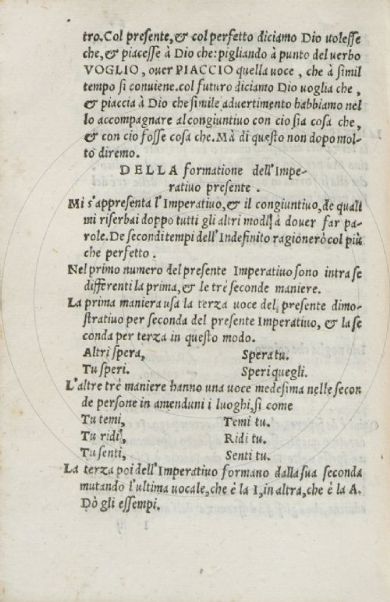 tro. Col presente, & col perfetto diciamo Dio uolesse
che, & piacesse à Dio che: pigliando à punto del uerbo
VOGLIO, ouer PIACCIO quella uoce, che à simil
tempo si conuiene. col futuro diciamo Dio uoglia che,
& piaccia à Dio che simile aduertimento habbiamo nel
lo accompagnare al congiuntiuo con cio sia cosa che,
& con cio fosse cosa che. Mà di questo non dopo mol-
to diremo.
DELLA formatione dell'Impe-
ratiuo presente.
Mi s'appresenta l'Imperatiuo, & il congiuntiuo, de quali
mi riserbai doppo tutti gli altri modi à douer far pa-
role. De secondi tempi dell'Indefinito ragionerò col più
che perfetto.
Nel primo numero del presente Imperatiuo sono intra se
differenti la prima, & le tré seconde maniere.
La prima maniera usa la terza uoce del presente dimo-
stratiuo per seconda del presente Imperatiuo, & la se
conda per terza in questo modo.
Altri spera, Spera tu.
Tu speri. Speri quegli.
L'altre tré maniere hanno una uoce medesima nelle secon
de persone in amenduni i luoghi, si come
Tu temi, Temi tu.
Tu ridi, Ridi tu.
Tu senti, Senti tu.
La terza poi dell'Imperatiuo formano dalla sua seconda
mutando l'ultima uocale, che è la I, in altra, che è la A.
Dò gli essempi.